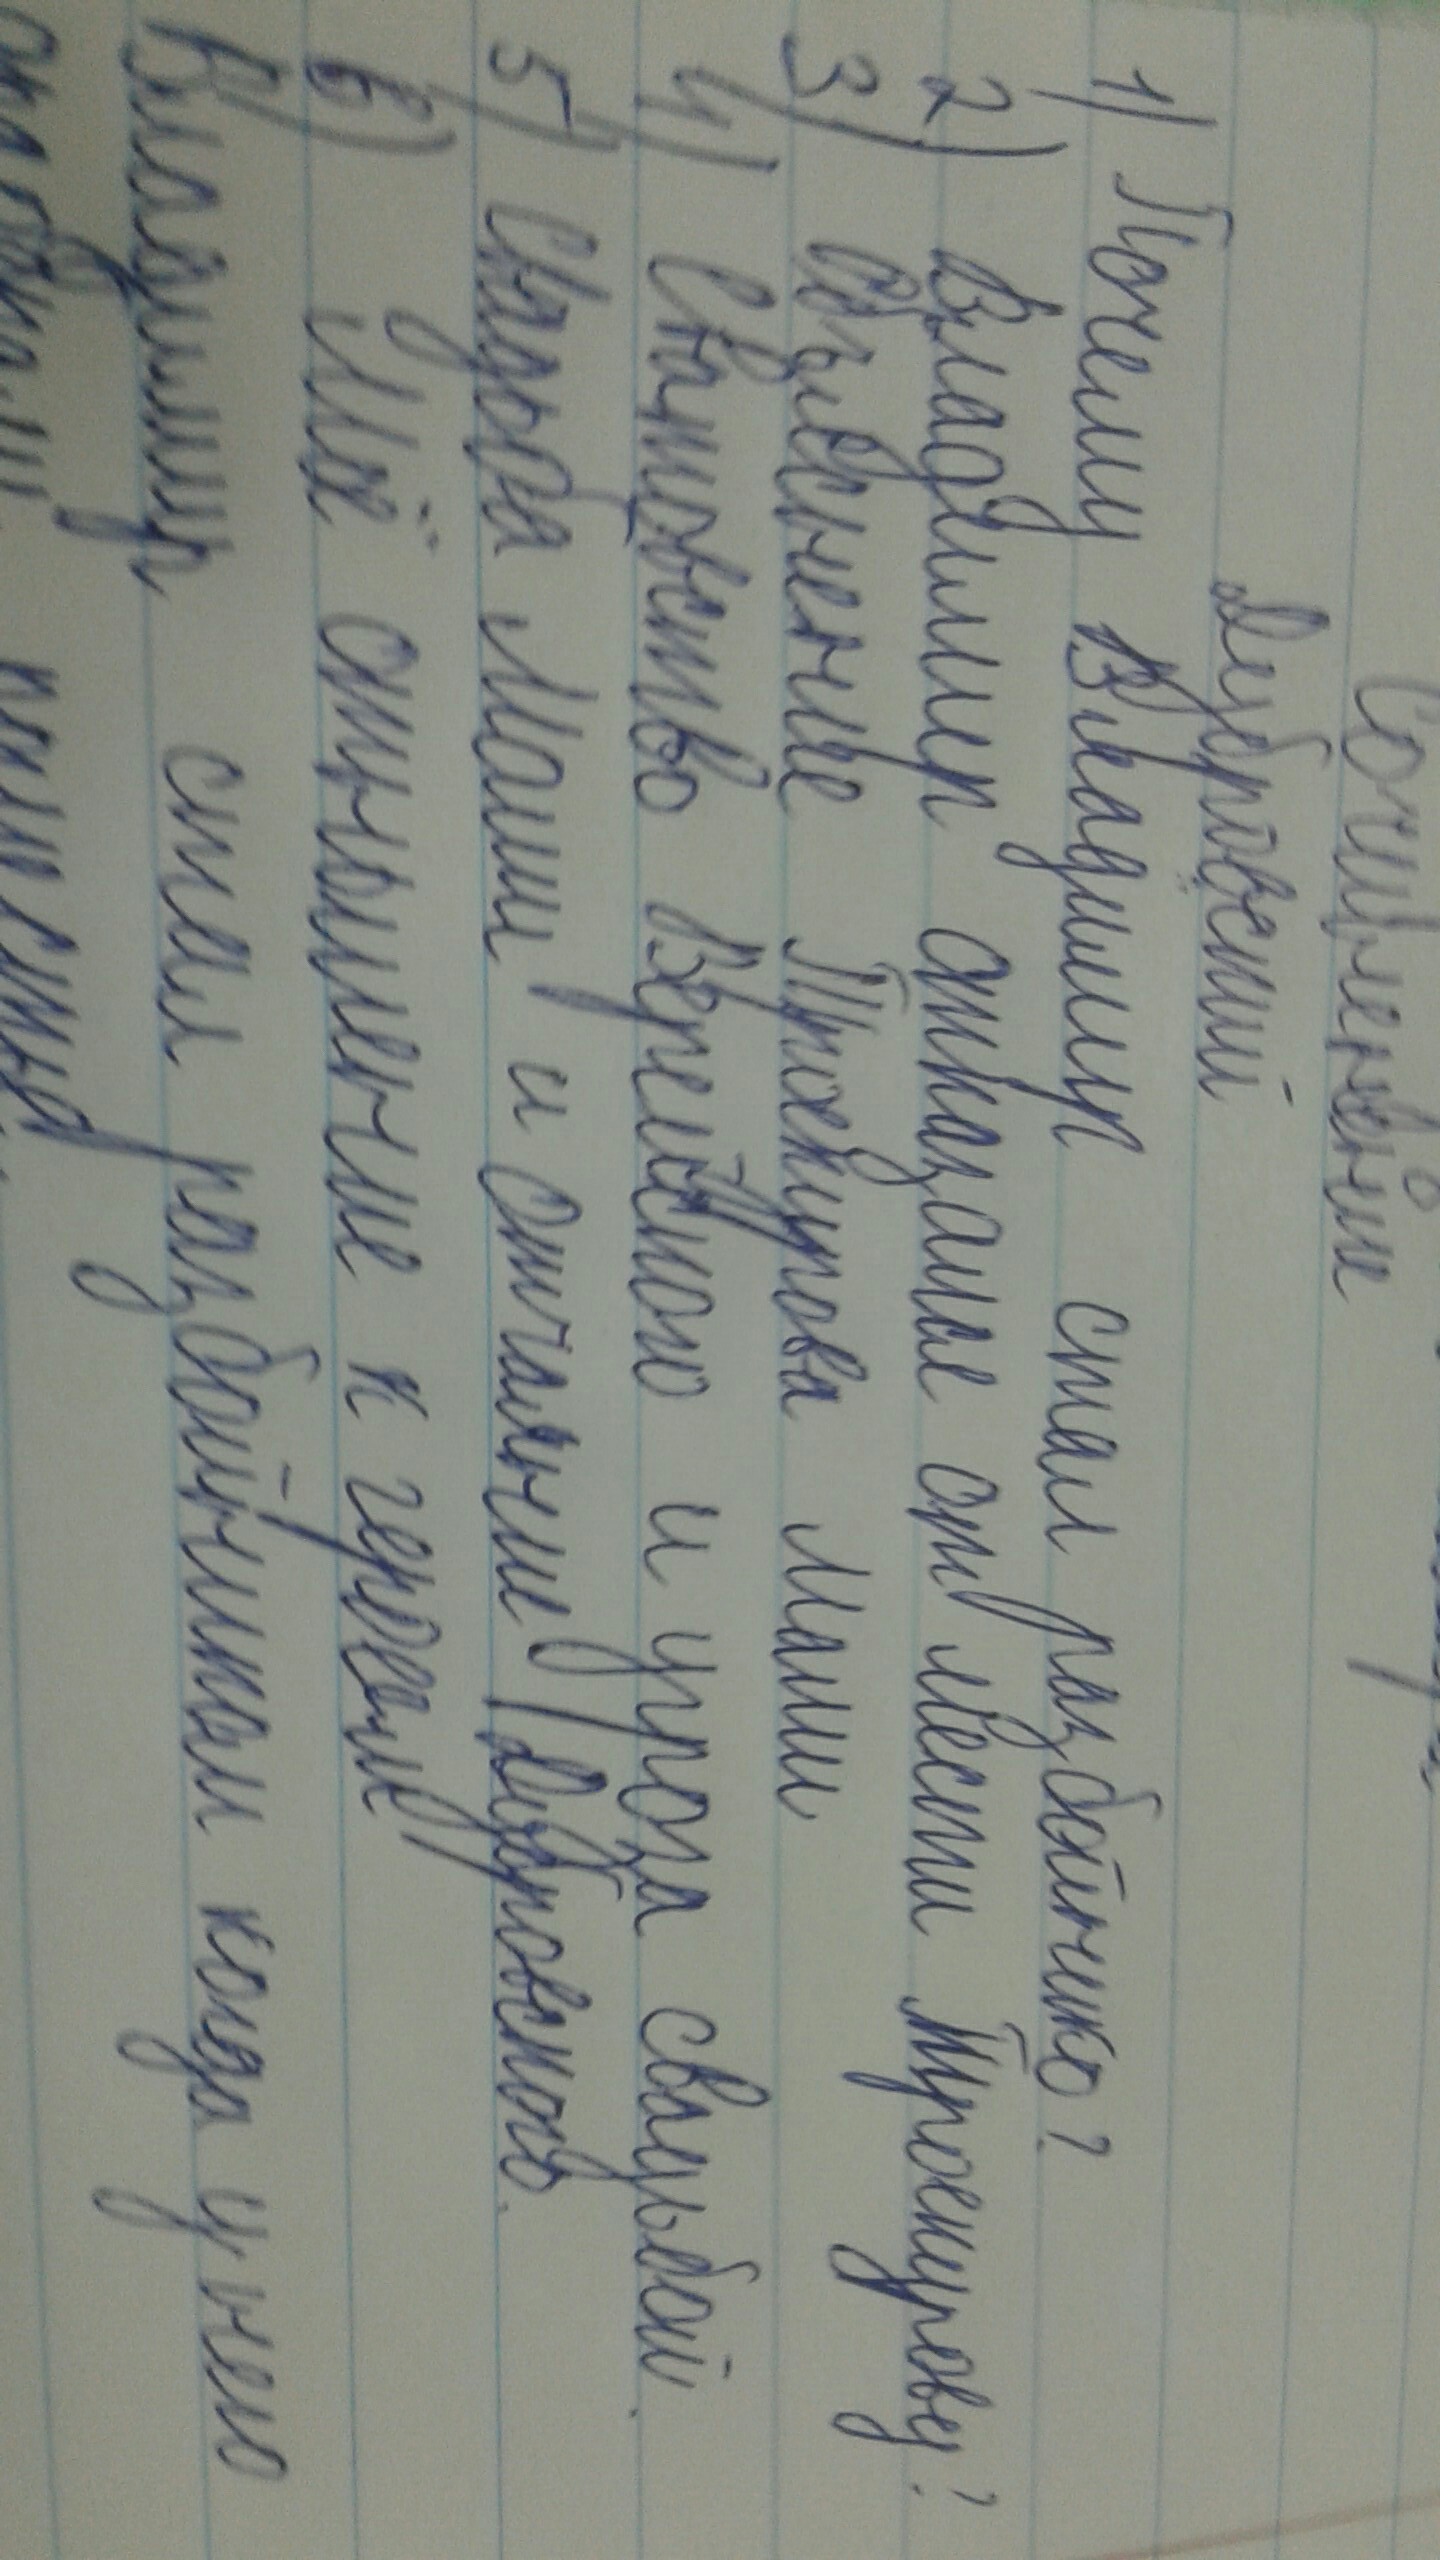 Сочинение
Дубровский
1) Почему Владимир стал разбойнико?
2) Владимир отказался от мести Троекурову?
3) Объяснение Троекурова Маши
4) Сватовство Верейского и угроза свадьбой.
5) Свадьба Маши и отчаяние Дубровского.
6) Моё отношение к героям
Владимир стал разбойником когда у него